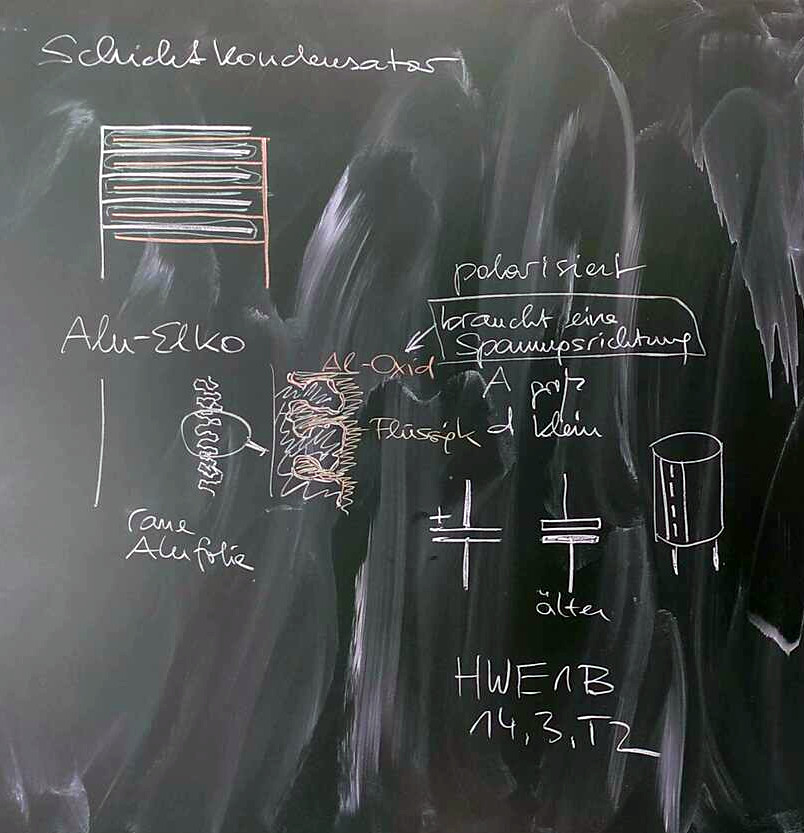 Schichtkondensator
polarisiert
braucht eine
Spannungsrichtung
Alu-Elko
Al-Oxid
A groß
Flüssigk
d klein
+
raue
Alufolie
älter
HWE1B
14,3,T2